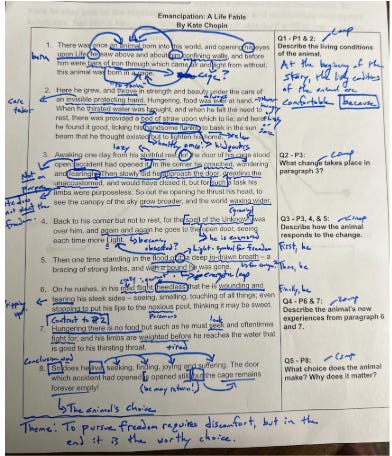 Emancipation: A Life Fable
By Kate Chopin
1. There was once an animal born into this world, and opening his eyes
upon Life, he saw above and about him confining walls, and before
him were bars of iron through which came air and light from without;
this animal was born in a cage.
born
cage?
2. Here he grew, and throve in strength and beauty under the care of
an invisible protecting hand. Hungering, food was ever at hand.
When he thirsted water was brought, and when he felt the need to
rest, there was provided a bed of straw upon which to lie; and here
he found it good, licking his handsome flanks, to bask in the sun
beam that he thought existed but to lighten his home.
care taker
lazy
3. Awaking one day from his slothful rest, lo! the door of his cage stood
open: accident had opened it. In the corner he crouched, wondering
and fearingly. Then slowly did he approach the door, dreading the
unaccustomed, and would have closed it, but for such a task his
limbs were purposeless. So out the opening he thrust his head, to
see the canopy of the sky grow broader, and the world waxing wider.
Not on purpose
He does not
(growing)
4. Back to his corner but not to rest, for the spell of the Unknown was
over him, and again and again he goes to the open door, seeing
each time more Light.
becoming obsessed?
he is enamored
Light: symbol for freedom
5. Then one time standing in the flood of it; a deep in-drawn breath – a
bracing of strong limbs, and with a bound he was gone.
6. On he rushes, in his mad flight, heedless that he is wounding and
tearing his sleek sides – seeing, smelling, touching of all things; even
stopping to put his lips to the noxious pool, thinking it may be sweet.
Contrast to #2
Poisonous
7. Hungering there is no food but such as he must seek and ofttimes
fight for; and his limbs are weighted before he reaches the water that
is good to his thirsting throat.
look
tired
Conclusion word
8. So does he live, seeking, finding, joying and suffering. The door
which accident had opened is opened still, but the cage remains
forever empty!
(he may return!)
The animal's choice
Theme: To pursue freedom requires discomfort, but in the
end it is the worthy choice.
Q1 - P1 & 2:
Describe the living conditions
of the animal.
At the beginning of
the story, the living conditions
of the animal are
comfortable because
Q2 - P3:
What change takes place in
paragraph 3?
Q3 - P3, 4, & 5:
Describe how the animal
responds to the change.
First, he
Then, he
Finally, he
Q4 - P6 & 7:
Describe the animal's new
experiences from paragraph 6
and 7.
Q5 - P8:
What choice does the animal
make? Why does it matter?